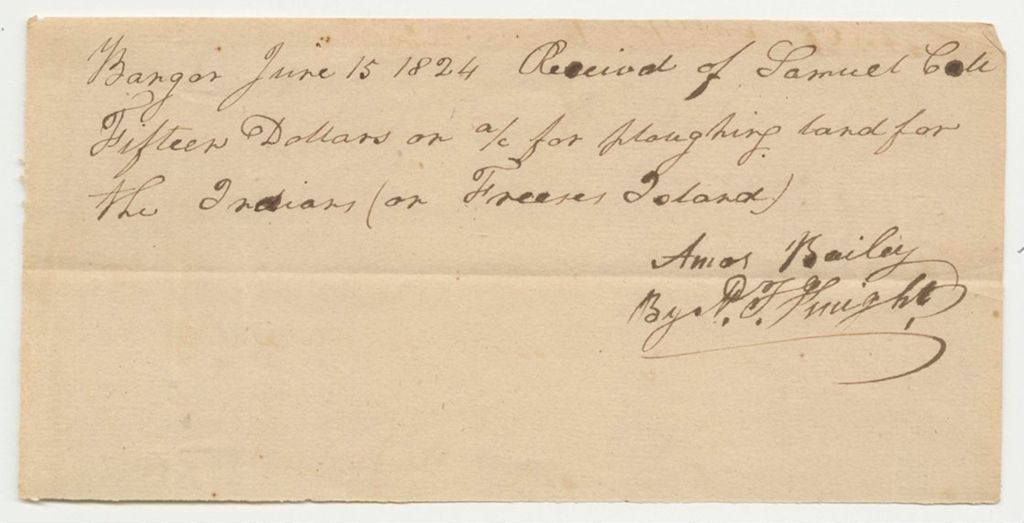 Bangor June 15 1824 Received of Samuel Call
Fifteen Dollars on a/c for ploughing land for
the Indians (on Freeses Island)
Amos Bailey
By P. F. Knight.